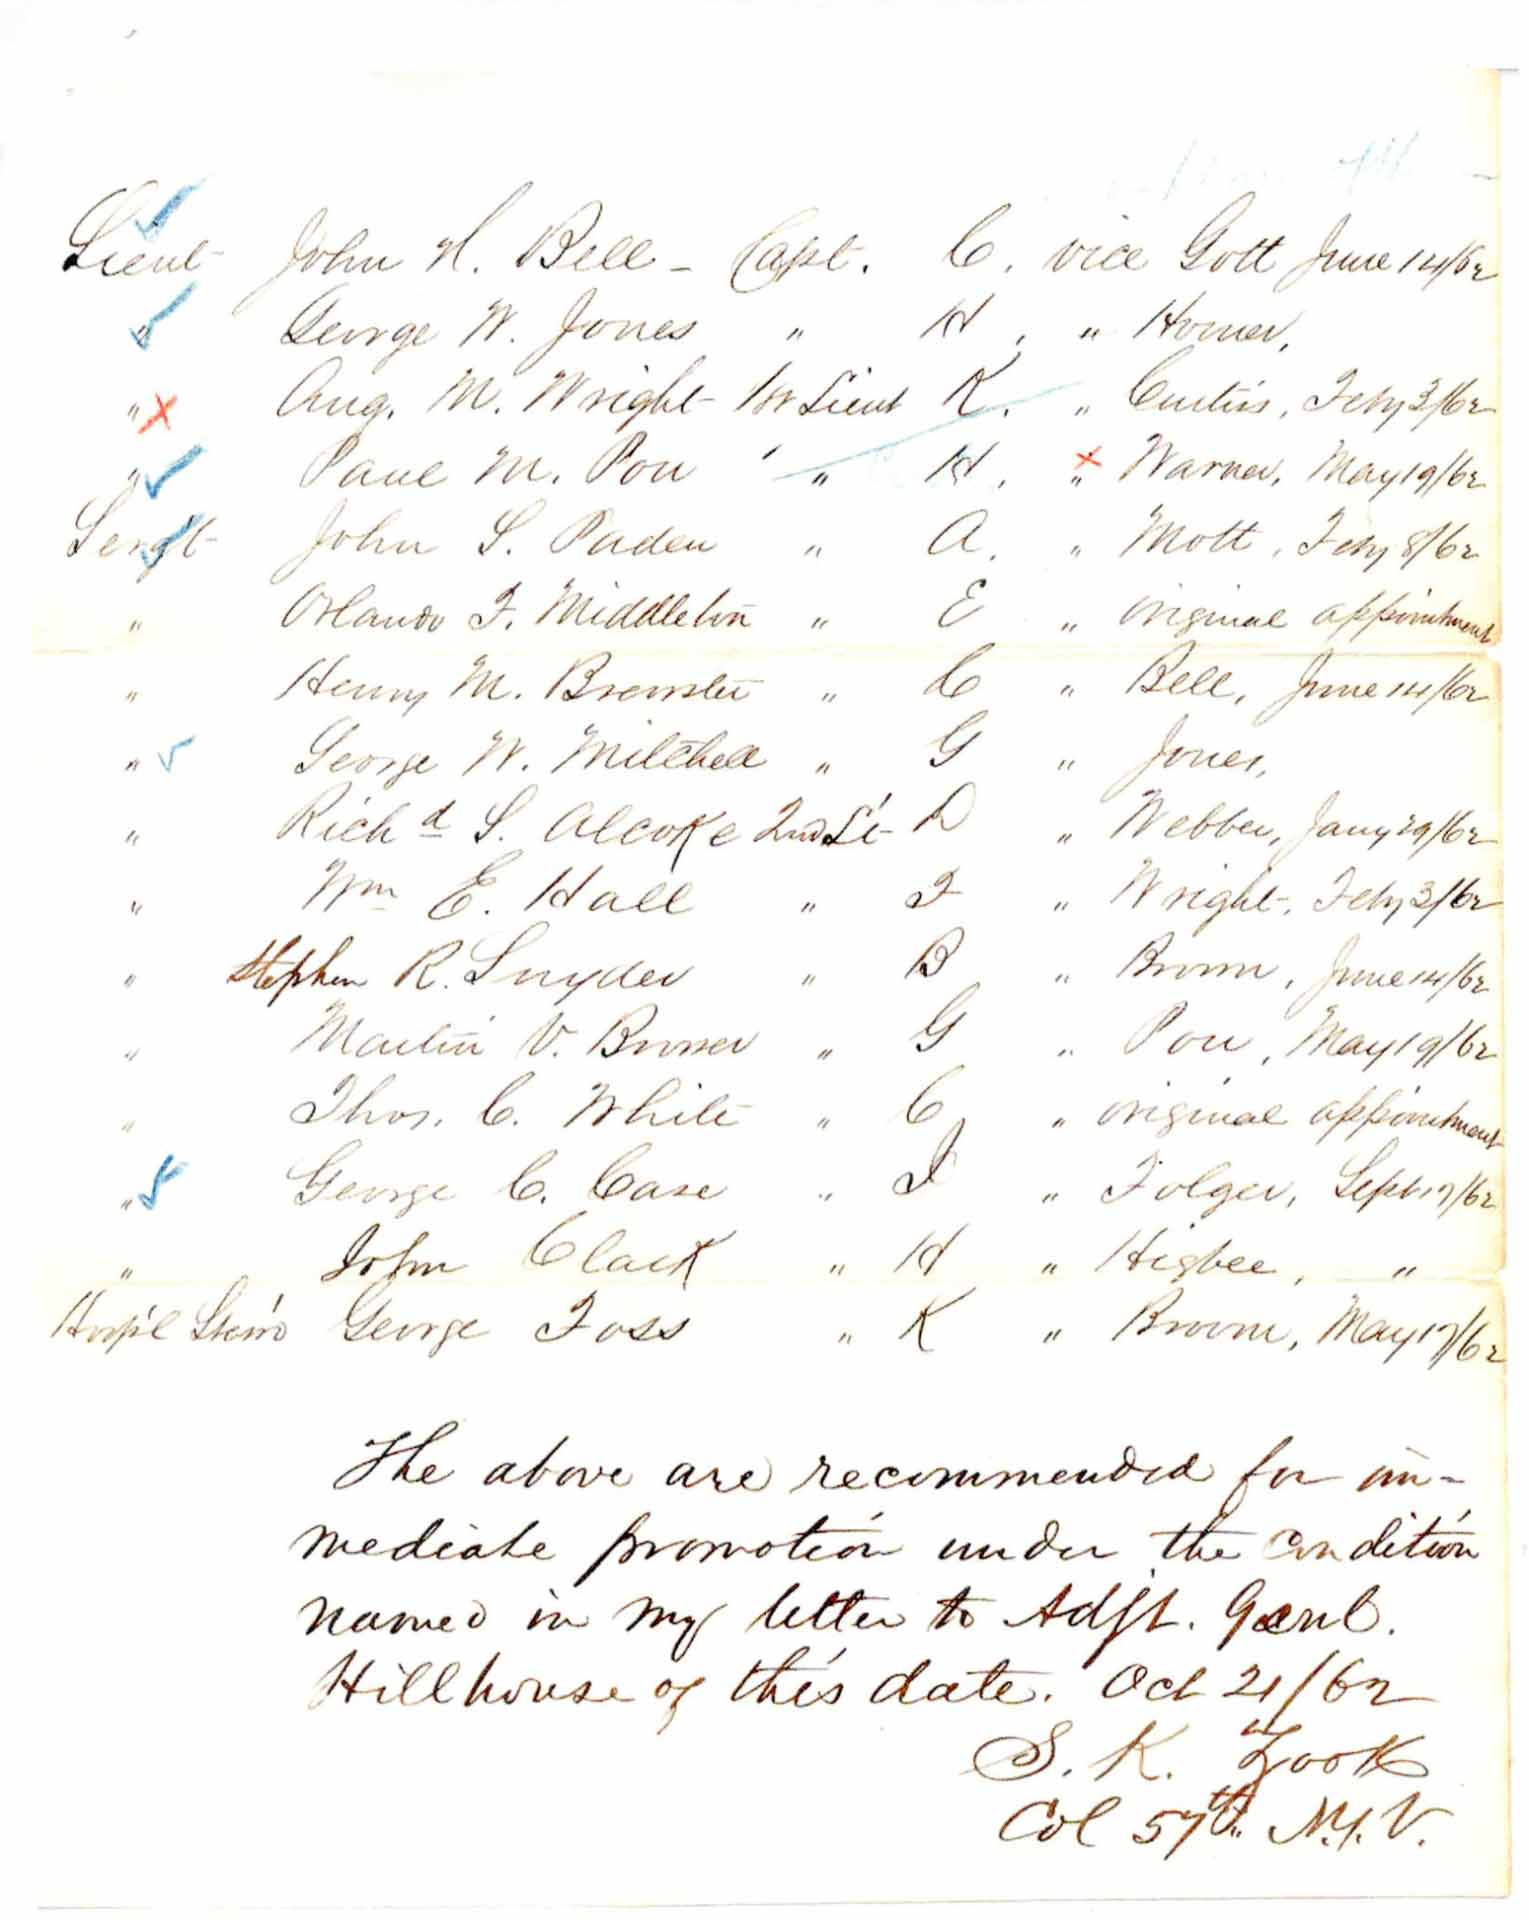 Lieut John H. Bell - Capt. C. vice Gott June 14/62
" George W. Jones " H. " Horner,
" Aug. M. Wright 1st Lieut K. " Curtiss, Feby 3/62
" Paul M. Pou " H. " Warner, May 19/62
Serg't John S. Paden " A. " Mott, Feby 8/62
" Orlando F. Middleton " E " original appointment
" Henry M. Brewster " C " Bell, June 14/62
" George W. Mitchell " G " Jones,
" Richd S. Alcoke 2nd Lt D " Webber, Jany 29/62
" Wm E. Hall " F " Wright, Feby 3/62
" Stephen R. Snyder " B " Broom, June 14/62
" Martin V. " G " Pou, May 19/62
" Thos. C. White " C " original appointment
" George C. Case " I " Folger, Sept 17/62
" John Clack " H " Higbee, "
Hosp'l Stew'd George Foss " K " Broom, May 17/62
The above are recommended for im-
mediate promotion under the condition
named in my letter to Adjt. Genl.
Hillhouse of this date. Oct 21/62
S. K. Zook
Col 57th N.Y.V.